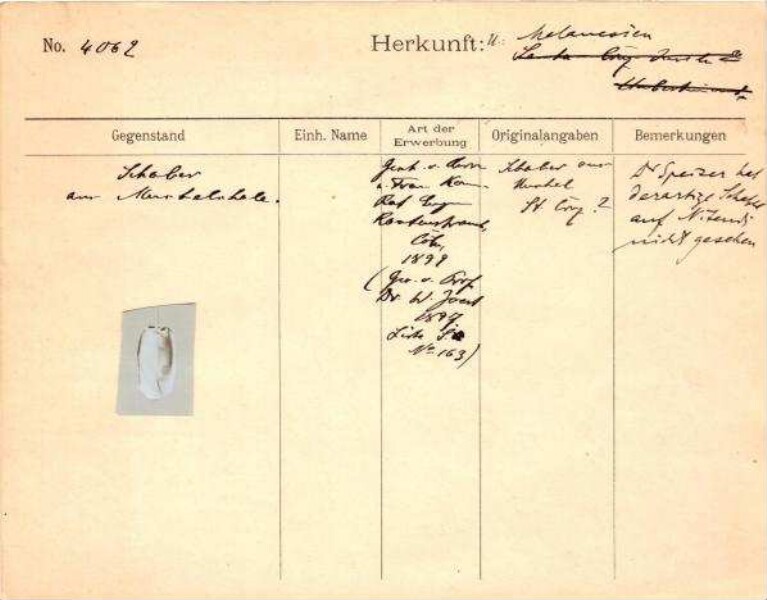 No. 4062
Herkunft: Melanesien
Santa Cruz Inseln
Gegenstand
Einh. Name
Art der Erwerbung
Originalangaben
Bemerkungen
Schaber
aus Muschelschale.
Gesch. v. Herrn
u. Frau Kom.
Rat Eugen
Rautenstrauch,
Cöln,
1899
(Ges. v. Prof.
Dr. W. Joest
1897
Liste
No. 163)
Schaber aus
Muschel
St. Cruz ?
Dr Speiser hat
derartige Schaber
auf Nitendi
nicht gesehen